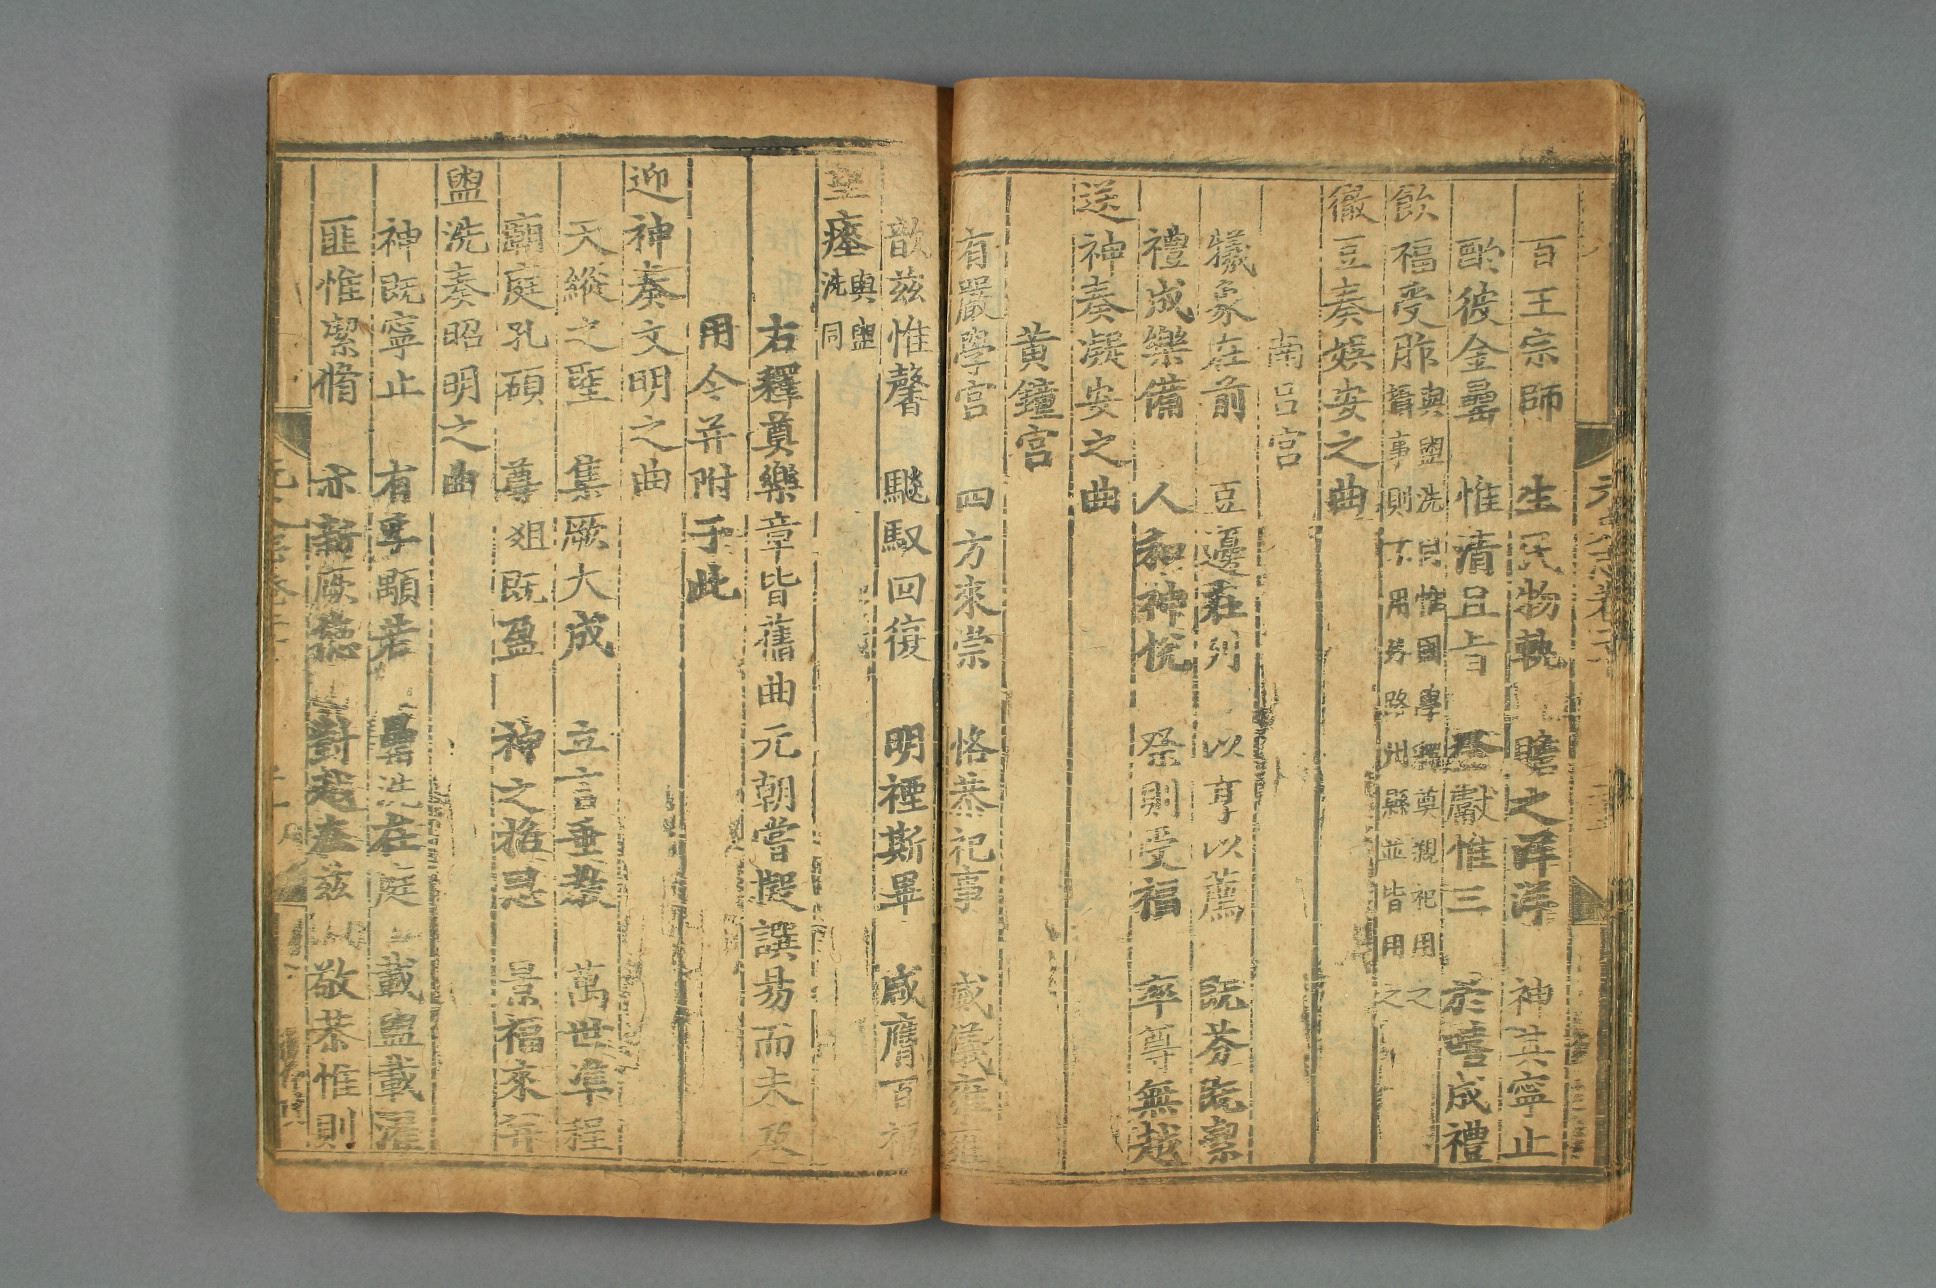 百王宗師　生民物軌　瞻之洋洋　神其寧止
酌彼金罍　惟清且旨　登獻惟三　於嘻成禮
飲福受胙與盥洗同惟國學釋奠親祀用之攝事則不用外路州縣並皆用之
徹豆奏娛安之曲
南呂宮
犧象在前　豆籩在列　以享以薦　既芬既潔
禮成樂備　人和神悅　祭則受福　率尊無越
送神奏凝安之曲
黃鐘宮
有嚴學宮　四方來崇　恪恭祀事　威儀雍雍
歆茲惟馨　飈馭回復　明禋斯畢　咸膺百福
望瘞與盥洗同
右釋奠樂章皆舊曲元朝嘗擬譔易而未及
用今并附于此
迎神奏文明之曲
天縱之聖　集厥大成　立言垂敎　萬世準程
廟庭孔碩　尊俎既盈　神之格思　景福來并
盥洗奏昭明之曲
神既寧止　有孚顒若　罍洗在庭　載盥載濯
匪惟潔脩　亦新厥德　對越在茲　敬恭惟則